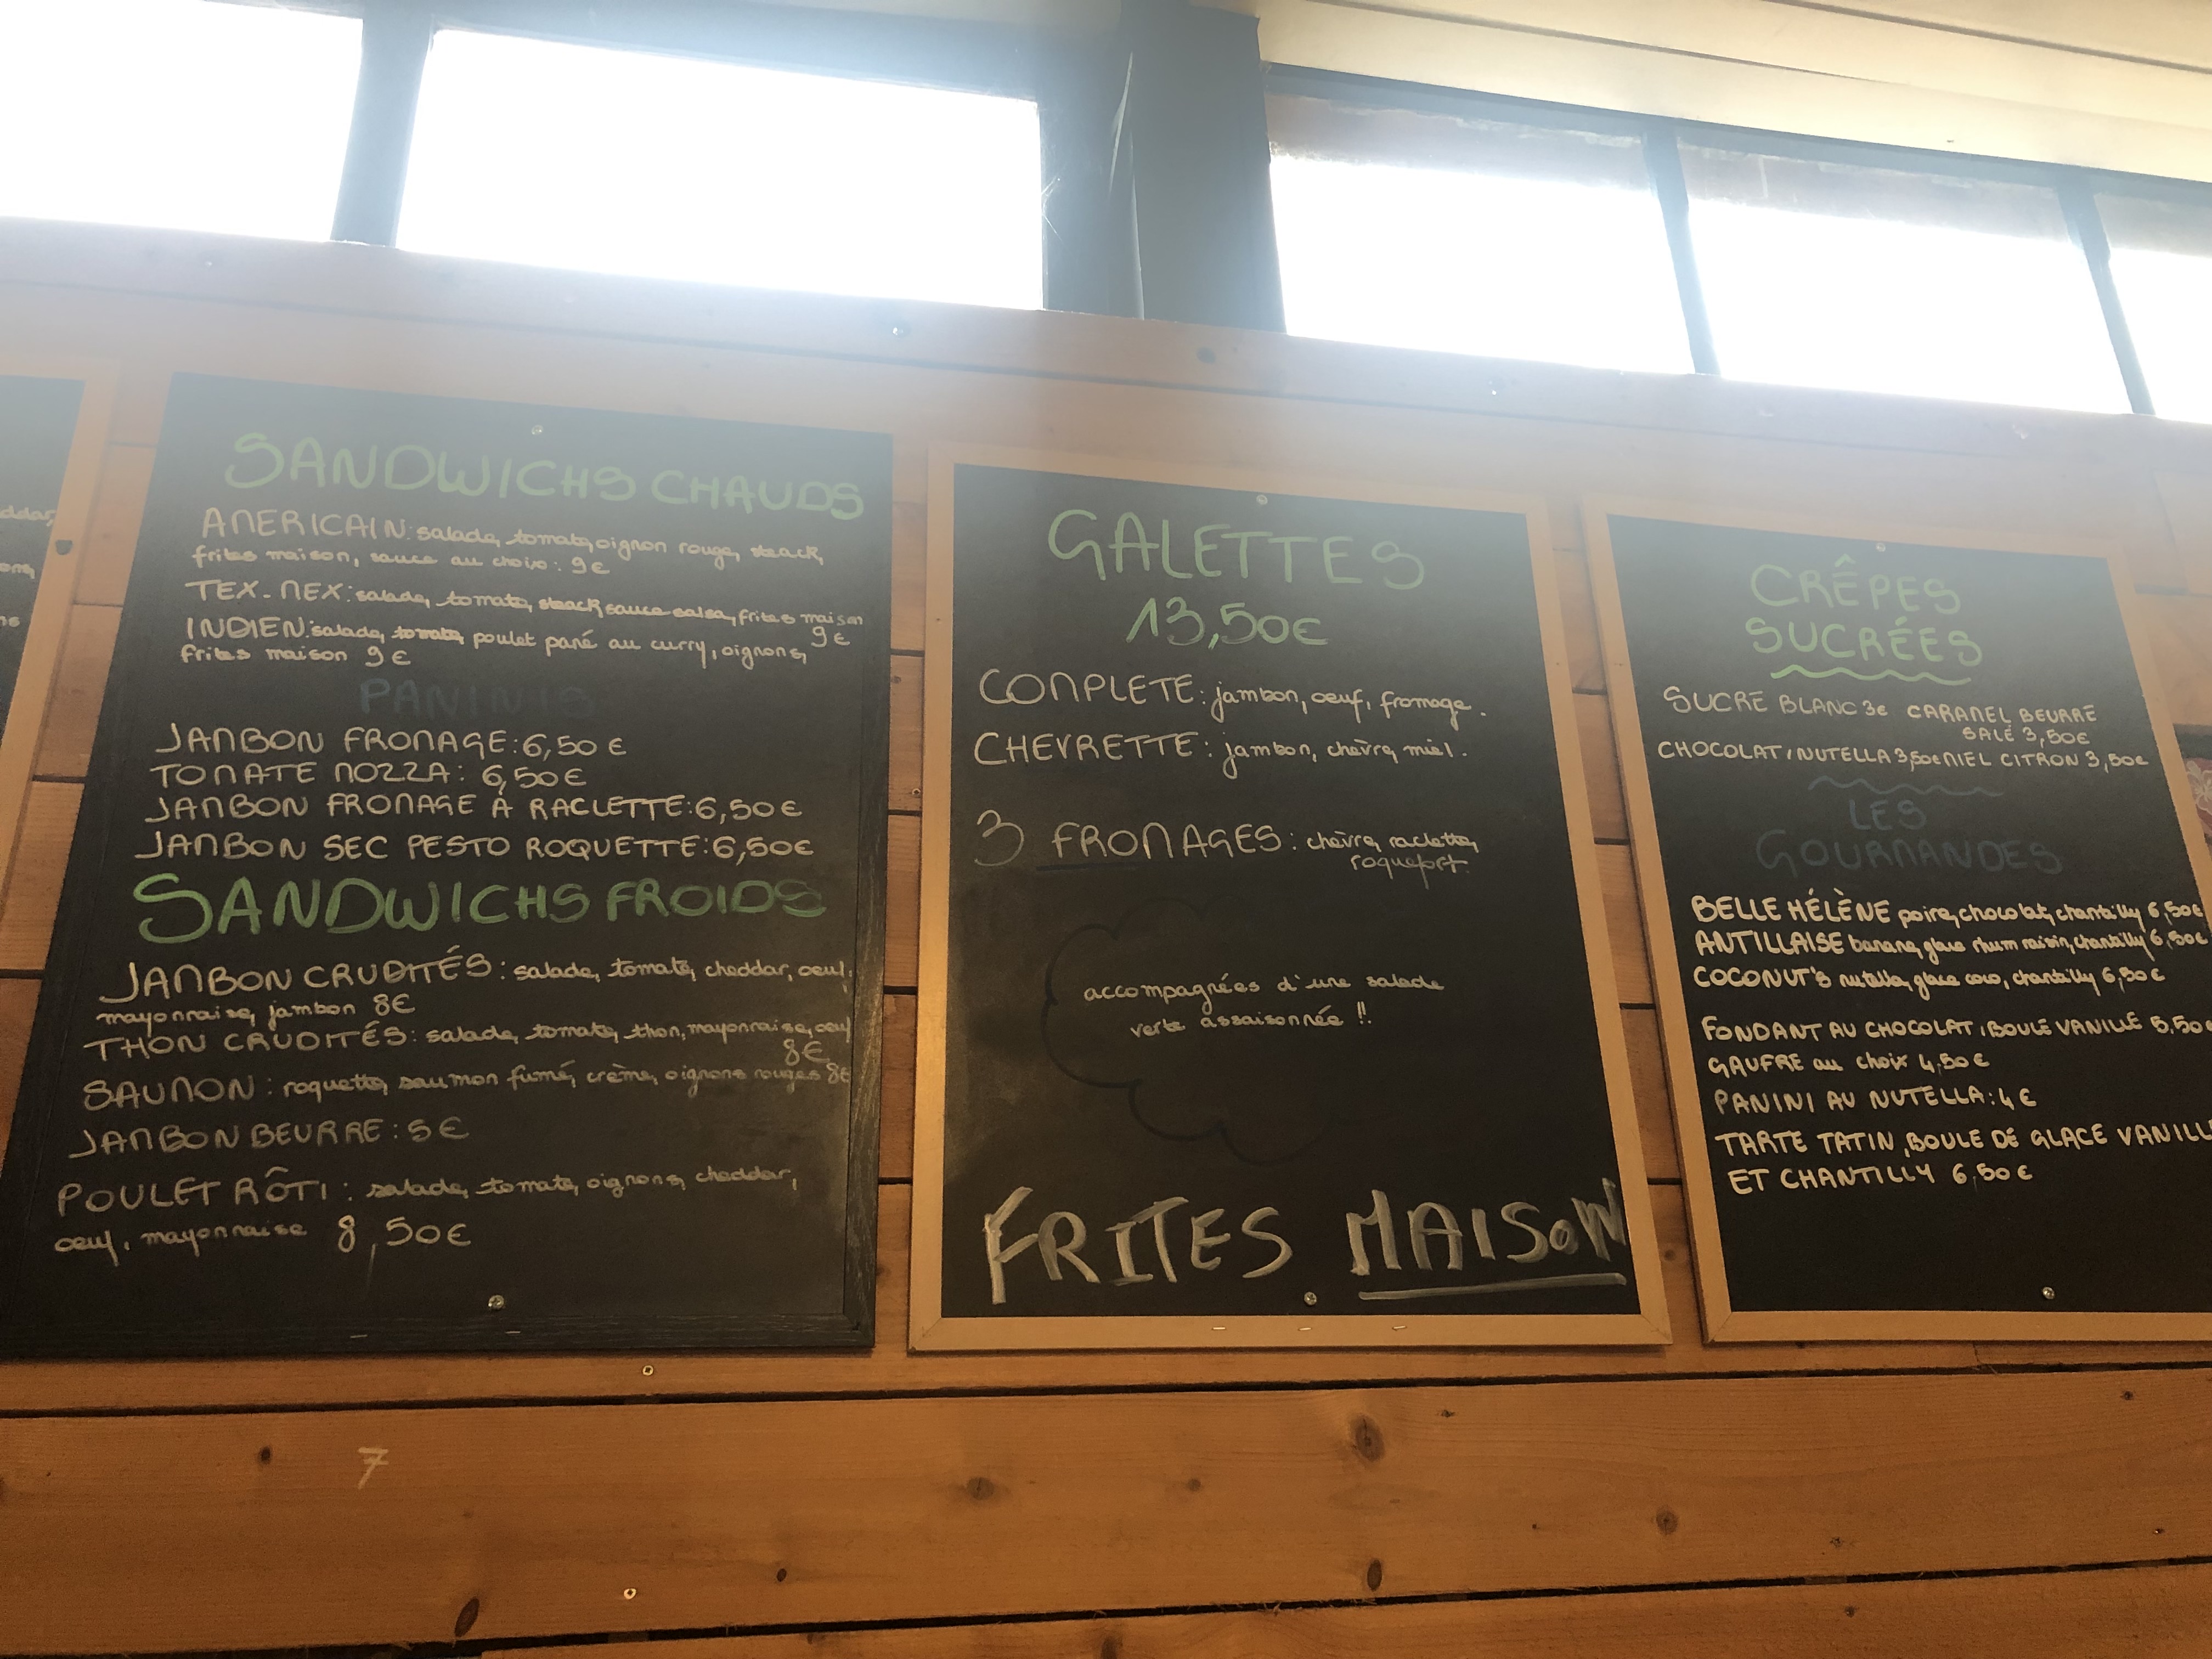 ddar,
ons,
ns
SANDWICHS CHAUDS
AMERICAIN: salade, tomate, oignon rouge, steack,
frites maison, sauce au choix: 9€
TEX-MEX: salade, tomate, steack sauce salsa, frites maison
9€
INDIEN: salade, tomate, poulet pané au curry, oignons,
frites maison 9€
PANINIS
JAMBON FROMAGE: 6,50€
TOMATE MOZZA: 6,50€
JAMBON FROMAGE À RACLETTE: 6,50€
JAMBON SEC PESTO ROQUETTE: 6,50€
SANDWICHS FROIDS
JAMBON CRUDITÉS: salade, tomate, cheddar, oeuf,
mayonnaise, jambon 8€
THON CRUDITÉS: salade, tomate, thon, mayonnaise, oeuf
8€
SAUMON: roquette, saumon fumé, crème, oignons rouges 8€
JAMBON BEURRE: 5€
POULET RÔTI: salade, tomate, oignons, cheddar,
oeuf, mayonnaise 8,50€
GALETTES
13,50€
COMPLETE: jambon, oeuf, fromage.
CHEVRETTE: jambon, chèvre, miel.
3 FROMAGES: chèvre, raclette,
roquefort.
accompagnées d'une salade
verte assaisonnée !!
FRITES MAISON
CRÊPES
SUCRÉES
SUCRE BLANC 3€ CARAMEL BEURRE
SALÉ 3,50€
CHOCOLAT/NUTELLA 3,50€ MIEL CITRON 3,50€
LES
GOURMANDES
BELLE HÉLÈNE poire, chocolat, chantilly 6,50€
ANTILLAISE banane, glace rhum raisin, chantilly 6,50€
COCONUT'S nutella, glace coco, chantilly 6,50€
FONDANT AU CHOCOLAT, BOULE VANILLE 5,50€
GAUFRE au choix 4,50€
PANINI AU NUTELLA: 4€
TARTE TATIN, BOULE DE GLACE VANILL
ET CHANTILLY 6,50€
7